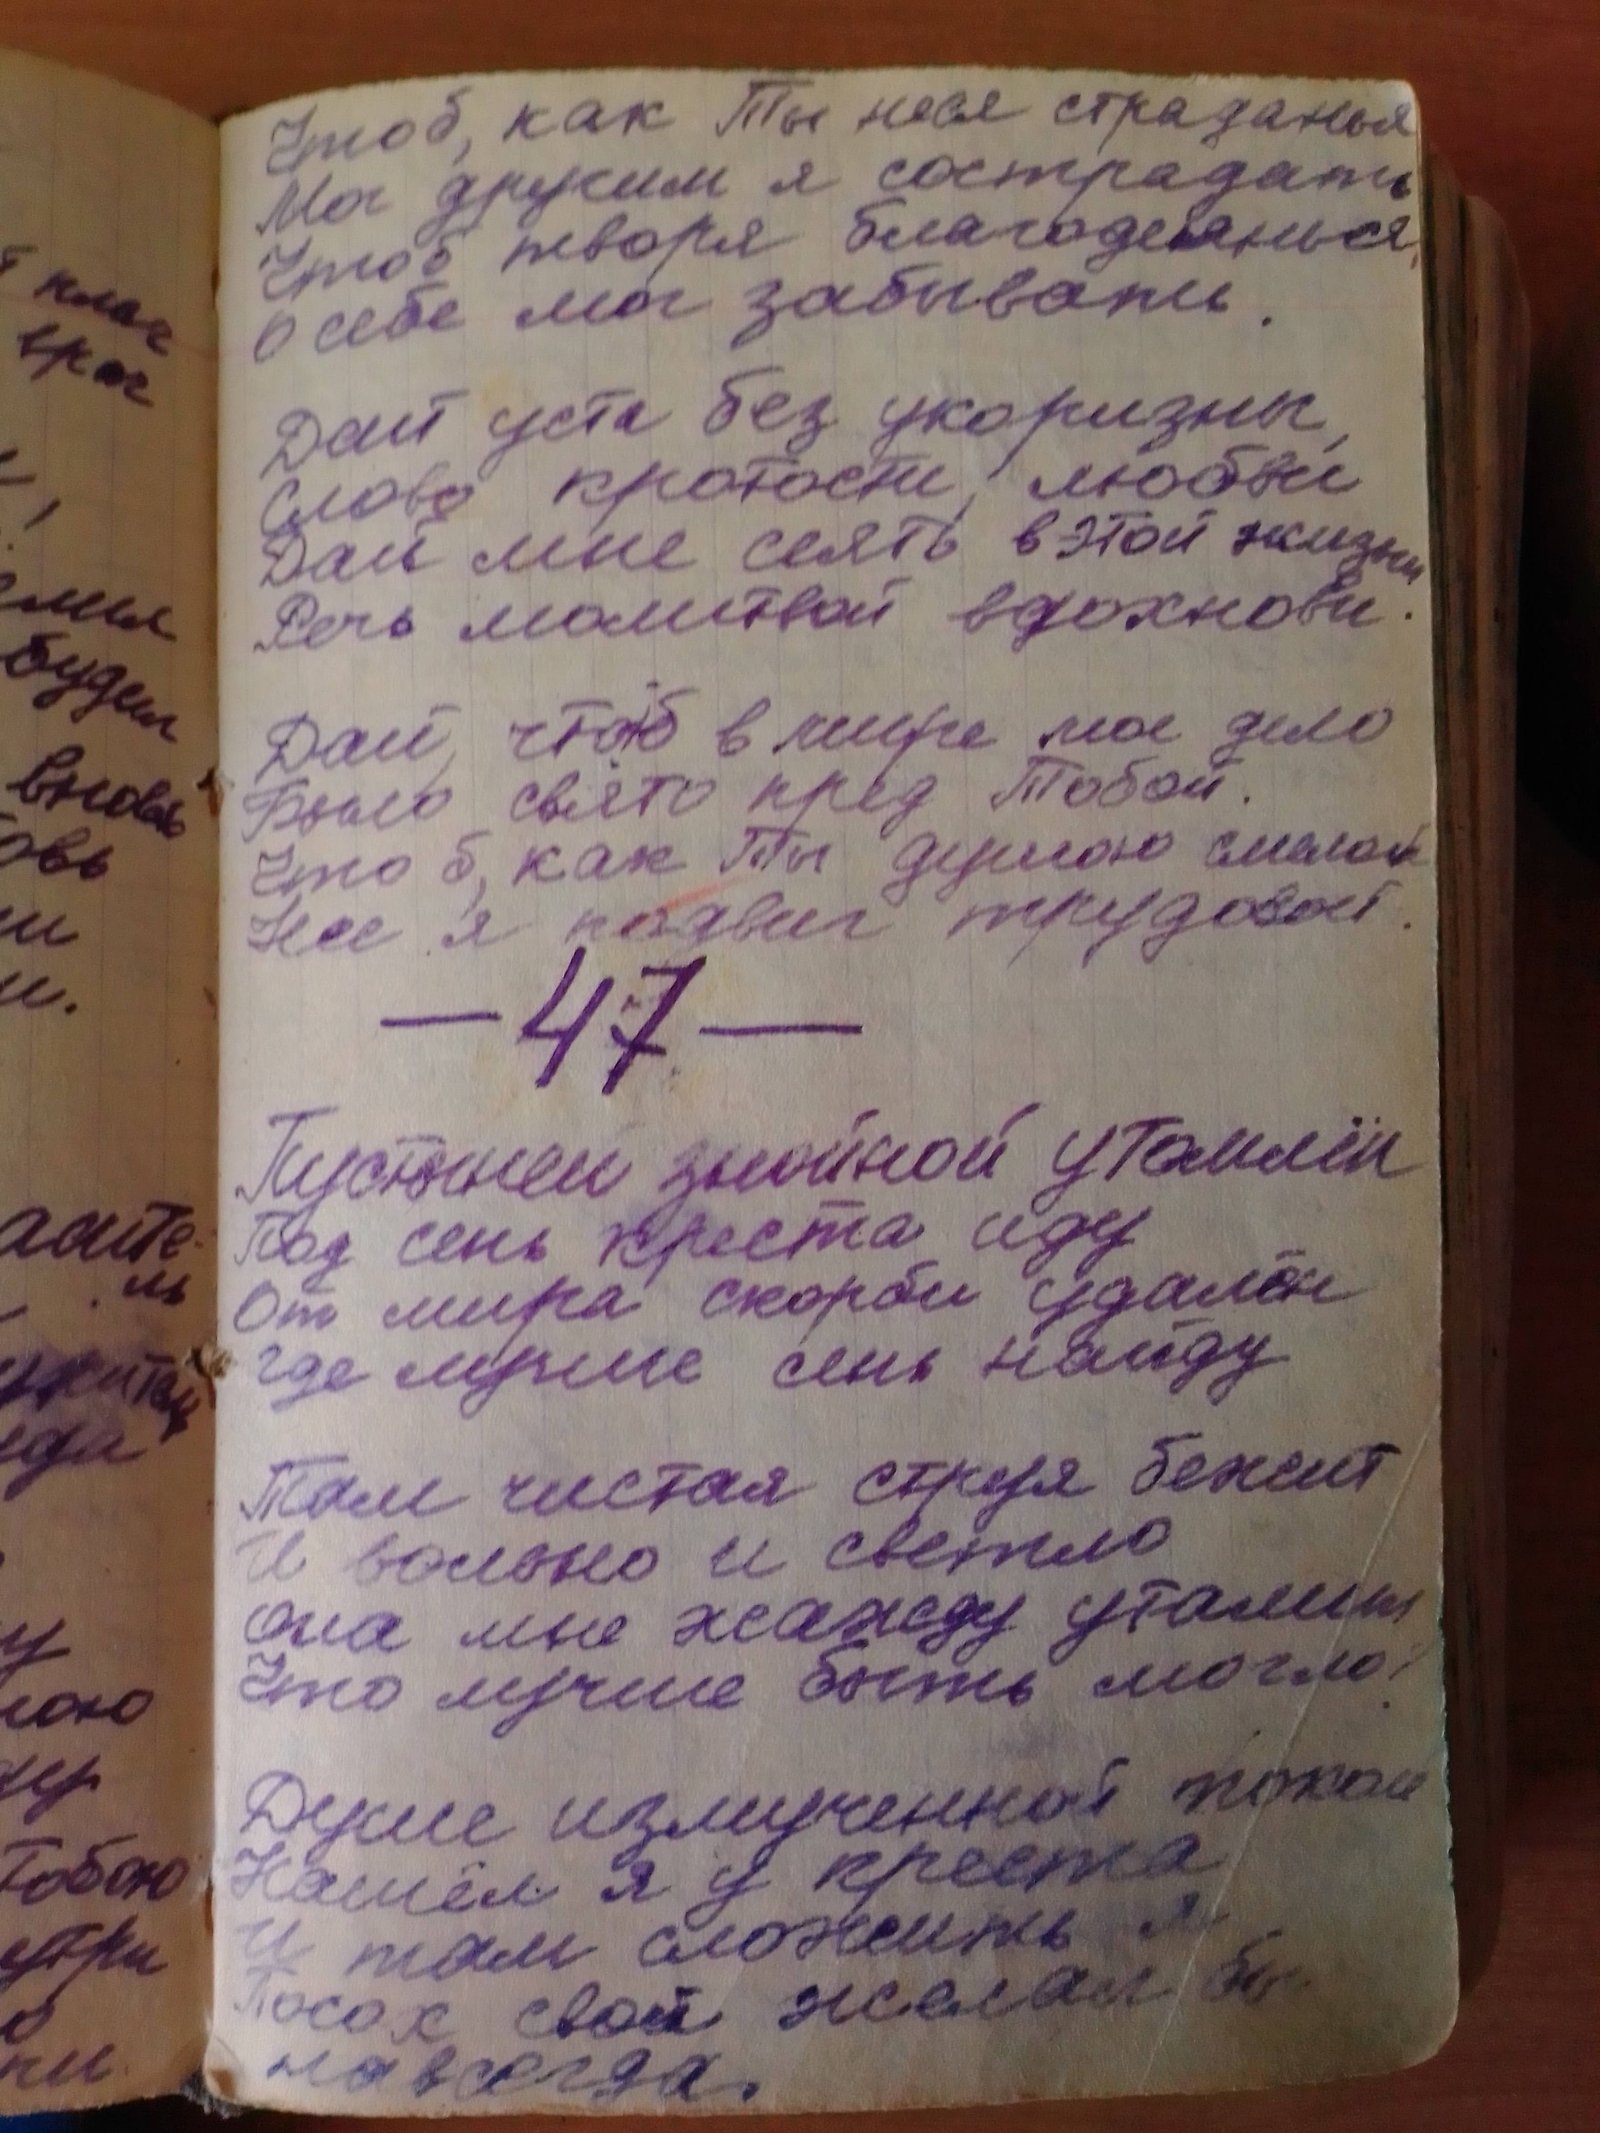 й плач
враг
емля
будем
вновь
овь
ии
и.
асите-
ль
ужители
еда
у
ною
Тобою
утри
о
ни.
Чтоб, как Ты неся страданья
Мог другим я сострадать
Чтоб творя благодеянья,
О себе мог забывать.
Дай уста без укоризны,
Слово кротости, любви
Дай мне сеять в этой жизни
Речь молитвой вдохнови.
Дай, чтоб в мире мое дело
Было свято пред Тобой.
Чтоб, как Ты душою смелой
Нес я подвиг трудовой.
— 47 —
Пустыней знойной утомлён
Под сень креста иду
От мира скорби удалён
Где лучше сень найду
Там чистая струя бежит
И вольно и светло
Она мне жажду утолит
Что лучше быть могло?
Душе измученной покой
Нашёл я у креста
И там сложить я
Посох свой желал бы
навсегда.